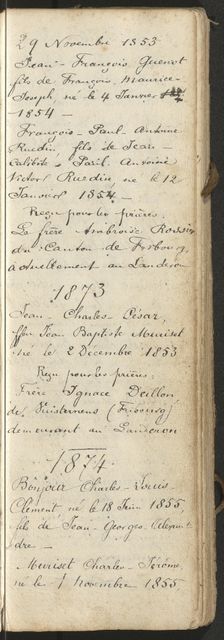 29 Novembre 1853
Jean-François Guenot
fils de François-Maurice-
Joseph né le 4 Janvier
1854 —
François-Paul-Antoine
Ruedin fils de Jean-
Calibite-Paul-Antoine
Victor Ruedin, né le 12
Janvier 1854 —
Reçu pour les prières.
Le frère Ambroise Rossier
du Canton de Fribourg,
actuellement au Landeron
1873
Jean-Charles César,
ffeu Jean Baptiste Muriset
né le 2 Décembre 1853
Reçu pour les prières.
Frère Ignace Deillon
de (Fribourg)
demeurant au Landeron
1874.
Bonjour Charles-Louis-
Clément, né le 18 Juin 1855,
fils de Jean-Georges
dre —
Muriset Charles-Jérôme
né le 1 Novembre 1855